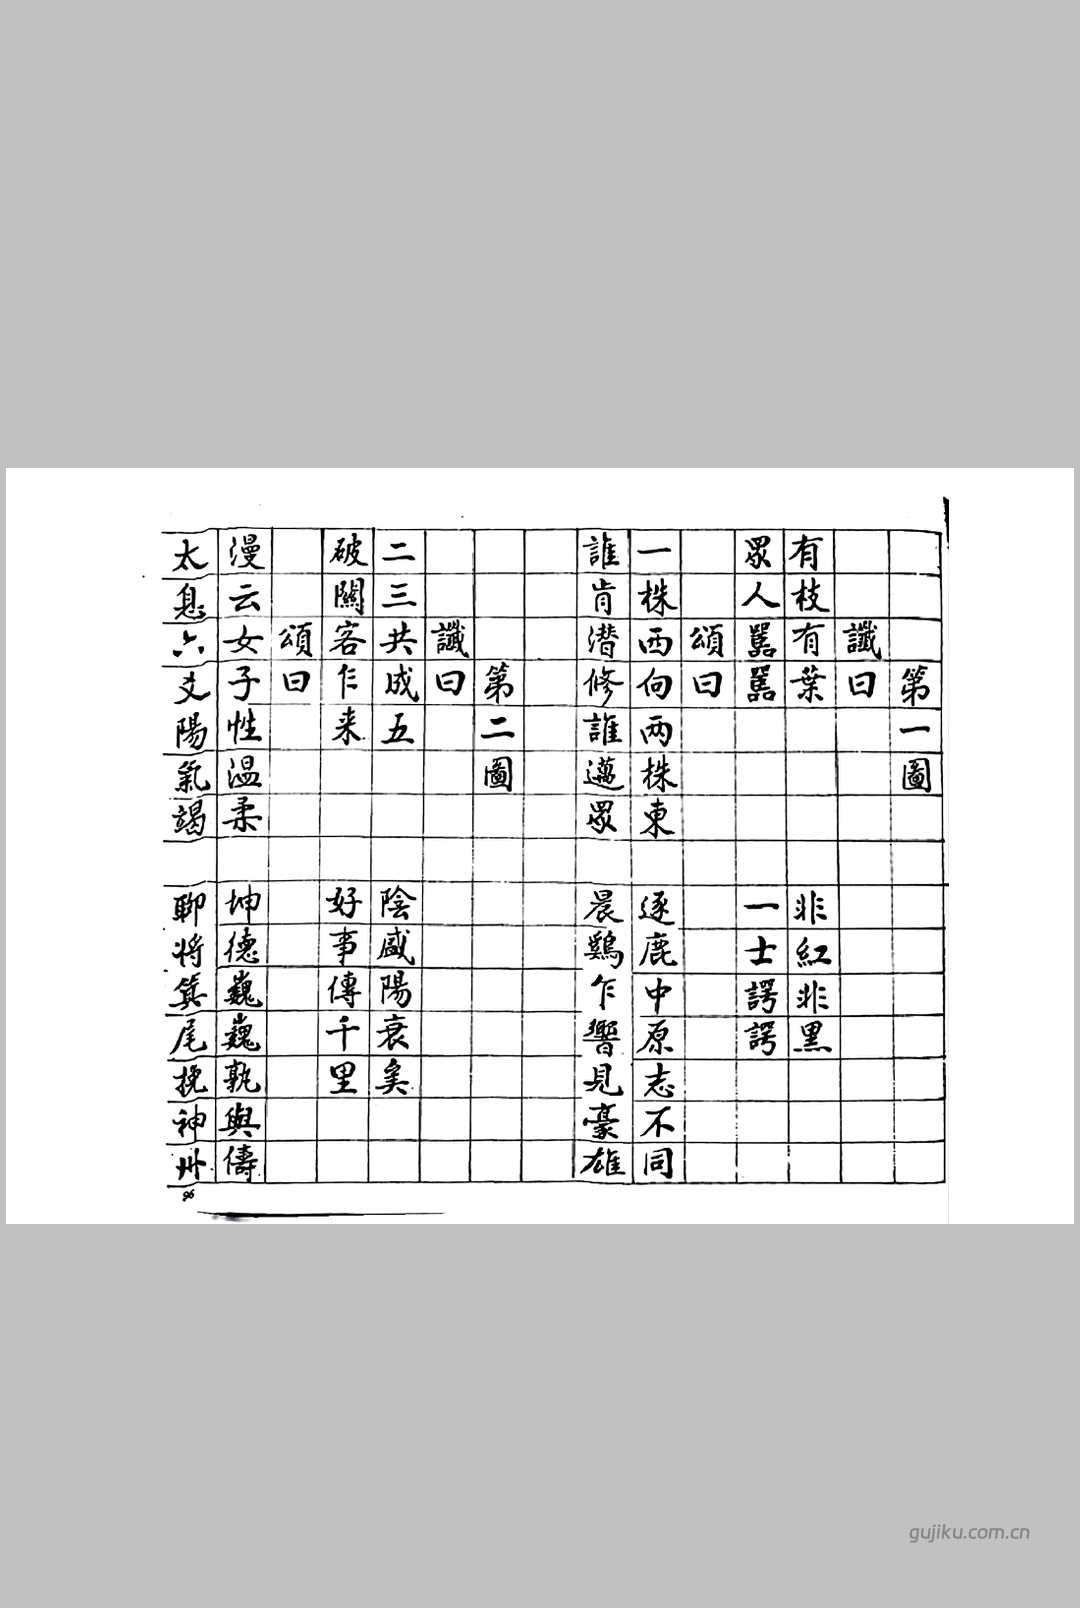 第一圖
讖曰
有枝有葉 非紅非黑
眾人嚚嚚 一士諤諤
頌曰
一株西向兩株東 逐鹿中原志不同
誰肯潛修誰邁眾 晨鷄乍響見豪雄
第二圖
讖曰
二三共成五 陰盛陽衰矣
破關客乍来 好事傳千里
頌曰
漫云女子性温柔 坤德巍巍孰與儔
太息六爻陽氣竭 聊将箕尾挽神州
96
gujiku.com.cn